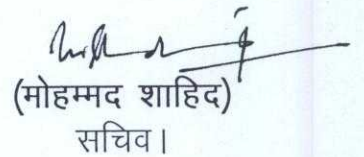 (मोहम्मद शाहिद)
सचिव।